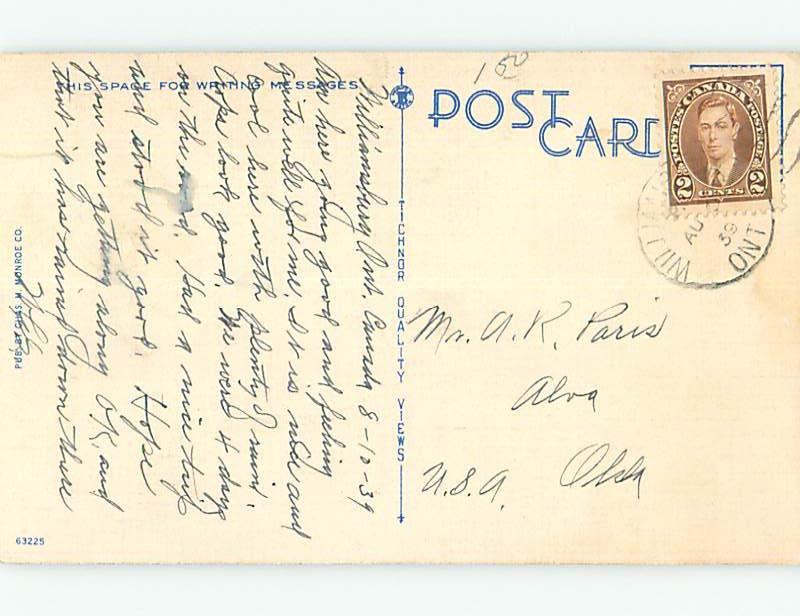 THIS SPACE FOR WRITING MESSAGES
POST CARD
1 50
POSTES CANADA POSTAGE
2 CENTS 2
WILLIAM
AU
39
ONT
Williamsburg Ont. Canada 8-10-39
Am here going good and feeling
quite well for me. It is nice and
cool here with plenty of rain.
Crops look good. We were 4 days
on the road. Had a nice trip
and stood it good. Hope
you are getting along O.K. and
that it has rained down there
Mr. A. R. Paris
Alva
Okla
U.S.A.
TICHNOR QUALITY VIEWS
PUB. BY CHAS. H. MONROE CO.
63225